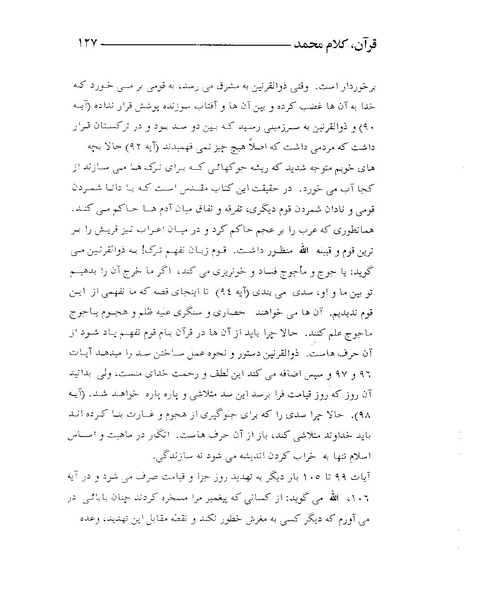 قرآن، کلام محمد ــــــــــــــــــــ ۱۲۷
برخوردار است. وقتی ذوالقرنین به مشرق می رسد، به قومی بر می خورد که
خدا به آن ها غضب کرده و بین آن ها و آفتاب سوزنده پوشش قرار نداده (آیه
۹۰) و ذوالقرنین به سرزمینی رسید که بین دو سد بود و در ترکستان قرار
داشت که مردمی داشت که اصلاً هیچ چیز نمی فهمیدند (آیه ۹۲) حالا بچه
های خوبم متوجه شدید که ریشه جوکهائی که برای ترک ها می سازند از
کجا آب می خورد. در حقیقت این کتاب مقدس است که با دانا شمردن
قومی و نادان شمردن قوم دیگری، تفرقه و نفاق میان آدم ها حاکم می کند.
همانطوری که عرب را بر عجم حاکم کرد و در میان اعراب نیز قریش را بر
ترین قوم و قبیله الله منظور داشت. قوم زبان نفهم ترک! به ذوالقرنین می
گوید: یا جوج و مأجوج فساد و خونریزی می کند، اگر ما خرج آن را بدهیم
تو بین ما و او، سدی می بندی (آیه ۹٤) تا اینجای قصه که ما نفهمی از این
قوم ندیدیم. آن ها می خواهند حصاری و سنگری علیه ظلم و هجوم یاجوج
ماجوج علم کنند. حالا چرا باید از آن ها در قرآن بنام قوم نفهم یاد شود از
آن حرف هاست. ذوالقرنین دستور و نحوه عمل ساختن سد را میدهد آیات
۹۶ و ۹۷ و سپس اضافه می کند این لطف و رحمت خدای منست، ولی بدانید
آن روز که روز قیامت فرا برسد این سد متلاشی و پاره پاره خواهد شد. (آیه
۹۸). حالا چرا سدی را که برای جلوگیری از هجوم و غارت بنا کرده اند
باید خداوند متلاشی کند، باز از آن حرف هاست. انگار در ماهیت و اساس
اسلام تنها به خراب کردن اندیشه می شود نه سازندگی.
آیات ۹۹ تا ۱۰۵ بار دیگر به تهدید روز جزا و قیامت صرف می شود و در آیه
۱۰۶، الله می گوید: از کسانی که پیغمبر مرا مسخره کردند چنان بابائی در
می آورم که دیگر کسی به مغزش خطور نکند و نقطه مقابل این تهدید، وعده